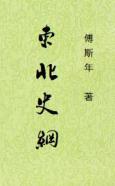 傅斯年 著
東北史綱